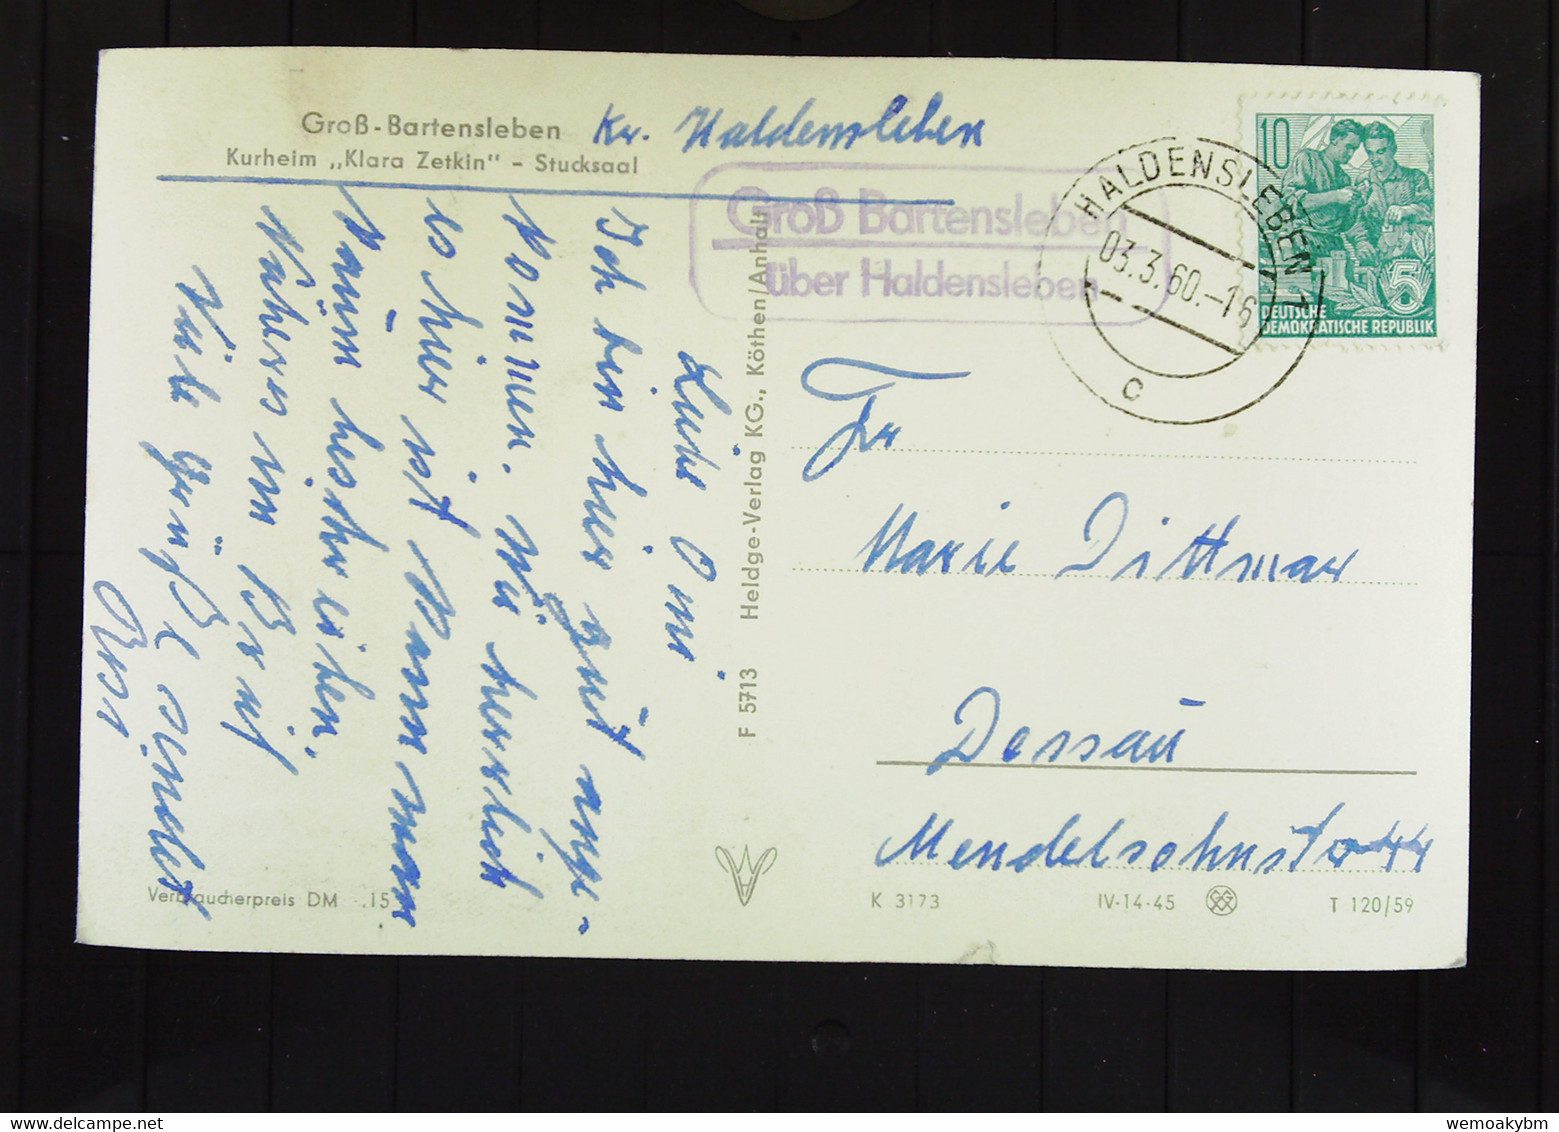 Groß-Bartensleben Kr. Haldensleben
Kurheim „Klara Zetkin" - Stucksaal
Groß Bartensleben
über Haldensleben
HALDENSLEBEN 1
03.3.60.-16
c
10
5
DEUTSCHE
DEMOKRATISCHE REPUBLIK
Liebe Omi
Ich bin hier gut ange-
kommen.
es hier ist kann man
kaum beschreiben.
Näheres im Brief
Viele Grüße sendet
Rosi
F 5713 Heldge-Verlag KG., Köthen/Anhalt
Fr
Marie Dittmar
Dessau
Mendelsohnstr
Verbraucherpreis DM -.15
K 3173 IV-14-45 T 120/59
wemoakybm